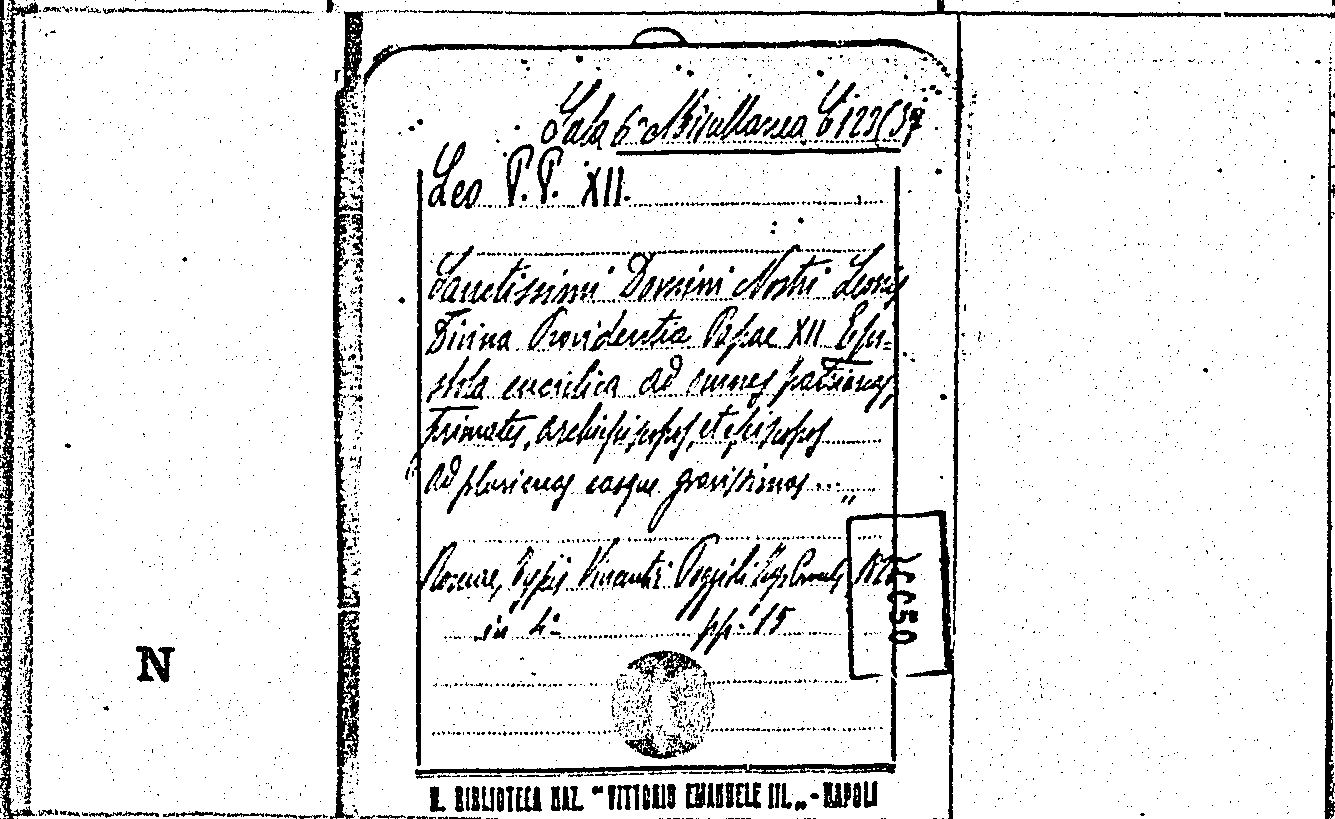 Sala 6ª Miscellanea C 122(37
Leo P.P. XII.
Sanctissimi Domini Nostri Leonis
Divina Providentia Papae XII Epi-
stola encicilica ad omnes patriarcas,
Primates, archiepiscopos, et episcopos
ad plurimas easque gravissimas ... „
Romae, Typis Vincentii Poggioli
in 4º pp. 15
LCC50
N
R. BIBLIOTECA NAZ. “VITTORIO EMANUELE III.„ - NAPOLI